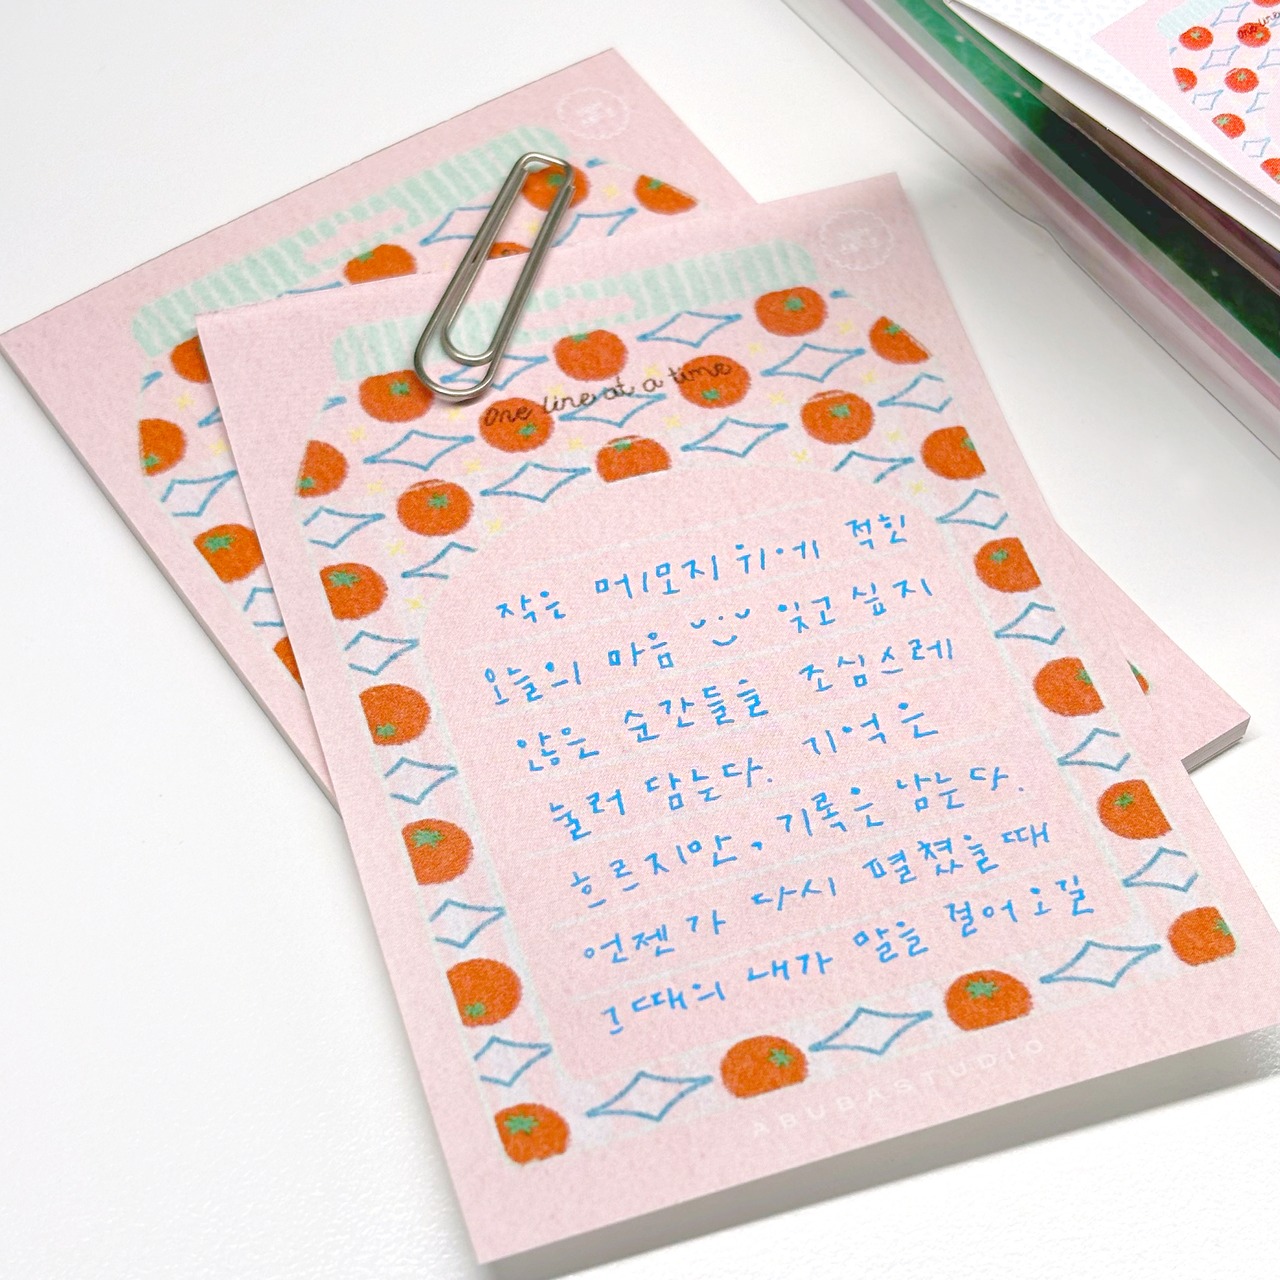 One line at a time
작은 메모지 위에 적힌
오늘의 마음 잊고 싶지
않은 순간들을 조심스레
눌러 담는다. 기억은
흐르지만, 기록은 남는다.
언젠가 다시 펼쳤을 때
그때의 내가 말을 걸어 오길
ABUBASTUDIO
One line